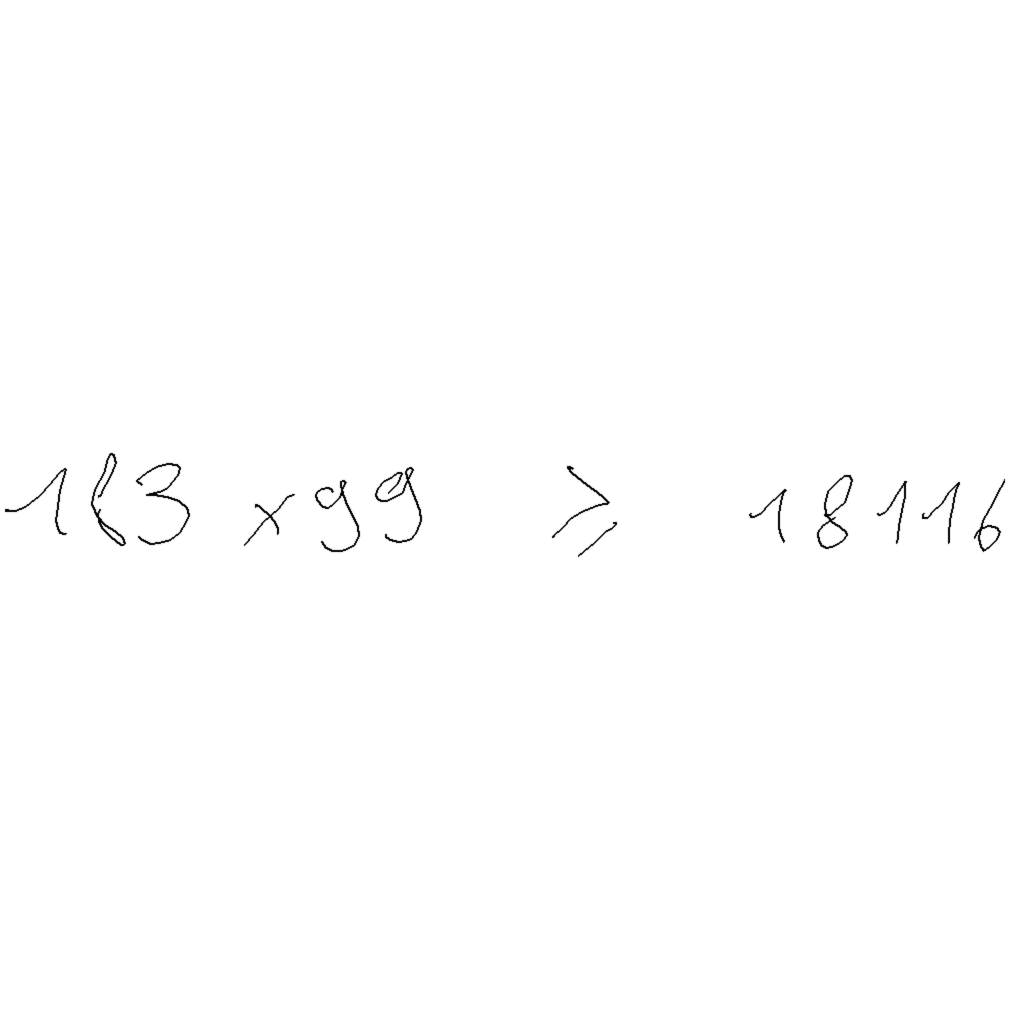 183 × 99 ≥ 18116